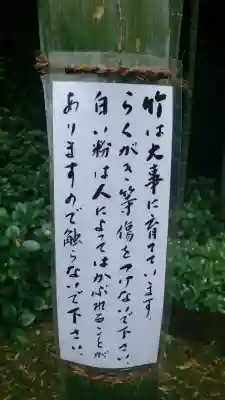 竹は大事に育てています。
らくがき等傷をつけないで下さい、
白い粉は人によってはかぶれることが
ありますので触らないで下さい、